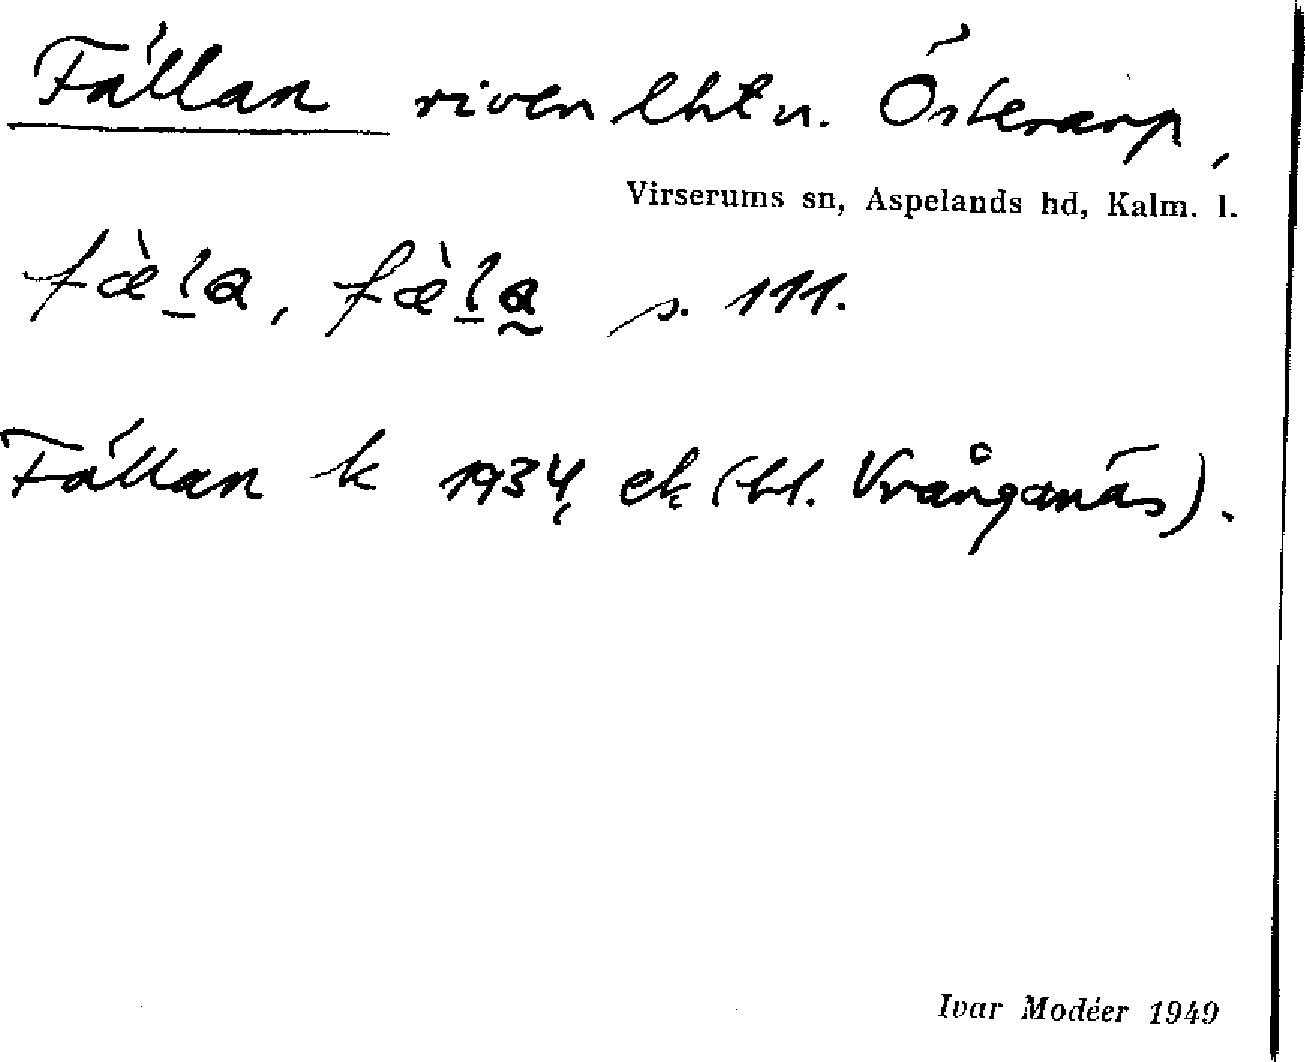 Fällan riven lht u. Österarp,
Virserums sn, Aspelands hd, Kalm. l.
fæ̀l̲a, fæ̀l̲a̰ s. 111.
Fällan k 1934, ek (bl. Vrånganäs).
Ivar Modéer 1949